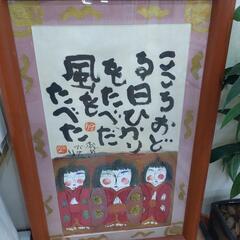 こころおど
る日ひかり
をたべた
風を
たべた